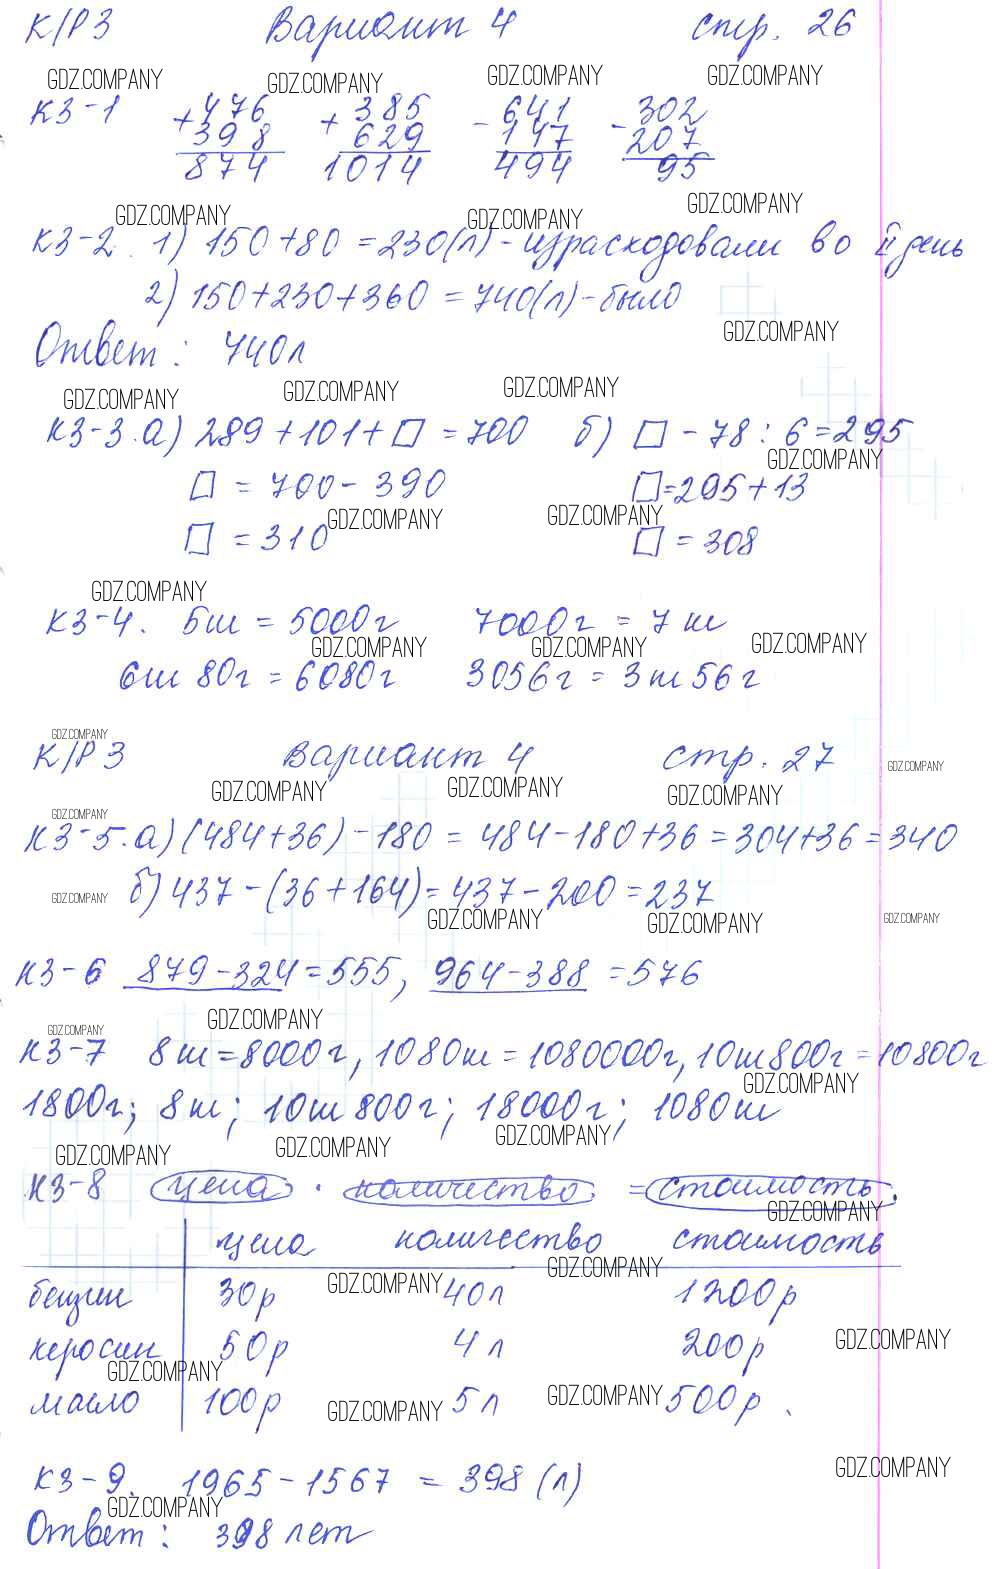 К/Р 3 Вариант 4 стр. 26
GDZ.COMPANY GDZ.COMPANY GDZ.COMPANY GDZ.COMPANY
К3-1 +476 +385 -641 -302
398 629 147 207
874 1014 494 95
GDZ.COMPANY GDZ.COMPANY GDZ.COMPANY
К3-2. 1) 150+80=230(л)-израсходовали во II день
2) 150+230+360=740(л)-было
GDZ.COMPANY
Ответ: 740л
GDZ.COMPANY GDZ.COMPANY GDZ.COMPANY
К3-3.а) 289+101+□=700 б) □-78:6=295
GDZ.COMPANY
□=700-390 □=295+13
GDZ.COMPANY GDZ.COMPANY
□=310 □=308
GDZ.COMPANY
К3-4. 5т=5000г 7000г=7т
GDZ.COMPANY GDZ.COMPANY GDZ.COMPANY
6т 80г=6080г 3056г=3т 56г
GDZ.COMPANY
К/Р 3 Вариант 4 стр. 27
GDZ.COMPANY
GDZ.COMPANY GDZ.COMPANY GDZ.COMPANY
GDZ.COMPANY
К3-5.а)(484+36)-180=484-180+36=304+36=340
б)437-(36+164)=437-200=237
GDZ.COMPANY GDZ.COMPANY GDZ.COMPANY GDZ.COMPANY
К3-6 879-324=555, 964-388=576
GDZ.COMPANY GDZ.COMPANY
К3-7 8т=8000г, 1080т=1080000г, 10т800г=10800г
GDZ.COMPANY
1800г; 8т; 10т 800г; 18000г; 1080т
GDZ.COMPANY GDZ.COMPANY GDZ.COMPANY
К3-8 цена · количество = стоимость.
GDZ.COMPANY
цена количество стоимость
GDZ.COMPANY
бензин 30р 40л 1200р
GDZ.COMPANY
керосин 50р 4л 200р
GDZ.COMPANY GDZ.COMPANY
масло 100р 5л 500р.
GDZ.COMPANY GDZ.COMPANY
К3-9. 1965-1567=398(л)
GDZ.COMPANY GDZ.COMPANY
Ответ: 398 лет